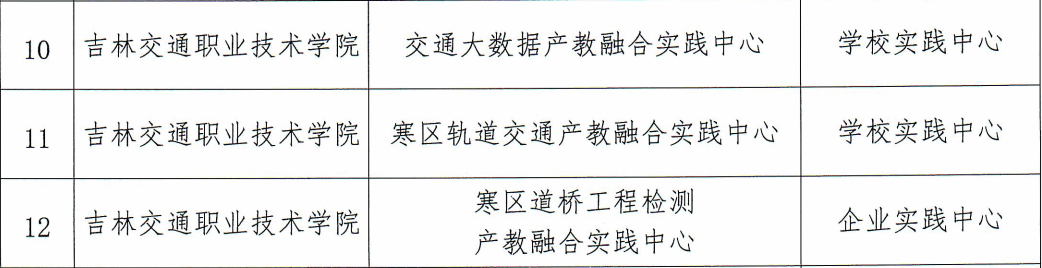 10 吉林交通职业技术学院 交通大数据产教融合实践中心 学校实践中心
11 吉林交通职业技术学院 寒区轨道交通产教融合实践中心 学校实践中心
12 吉林交通职业技术学院 寒区道桥工程检测
产教融合实践中心 企业实践中心